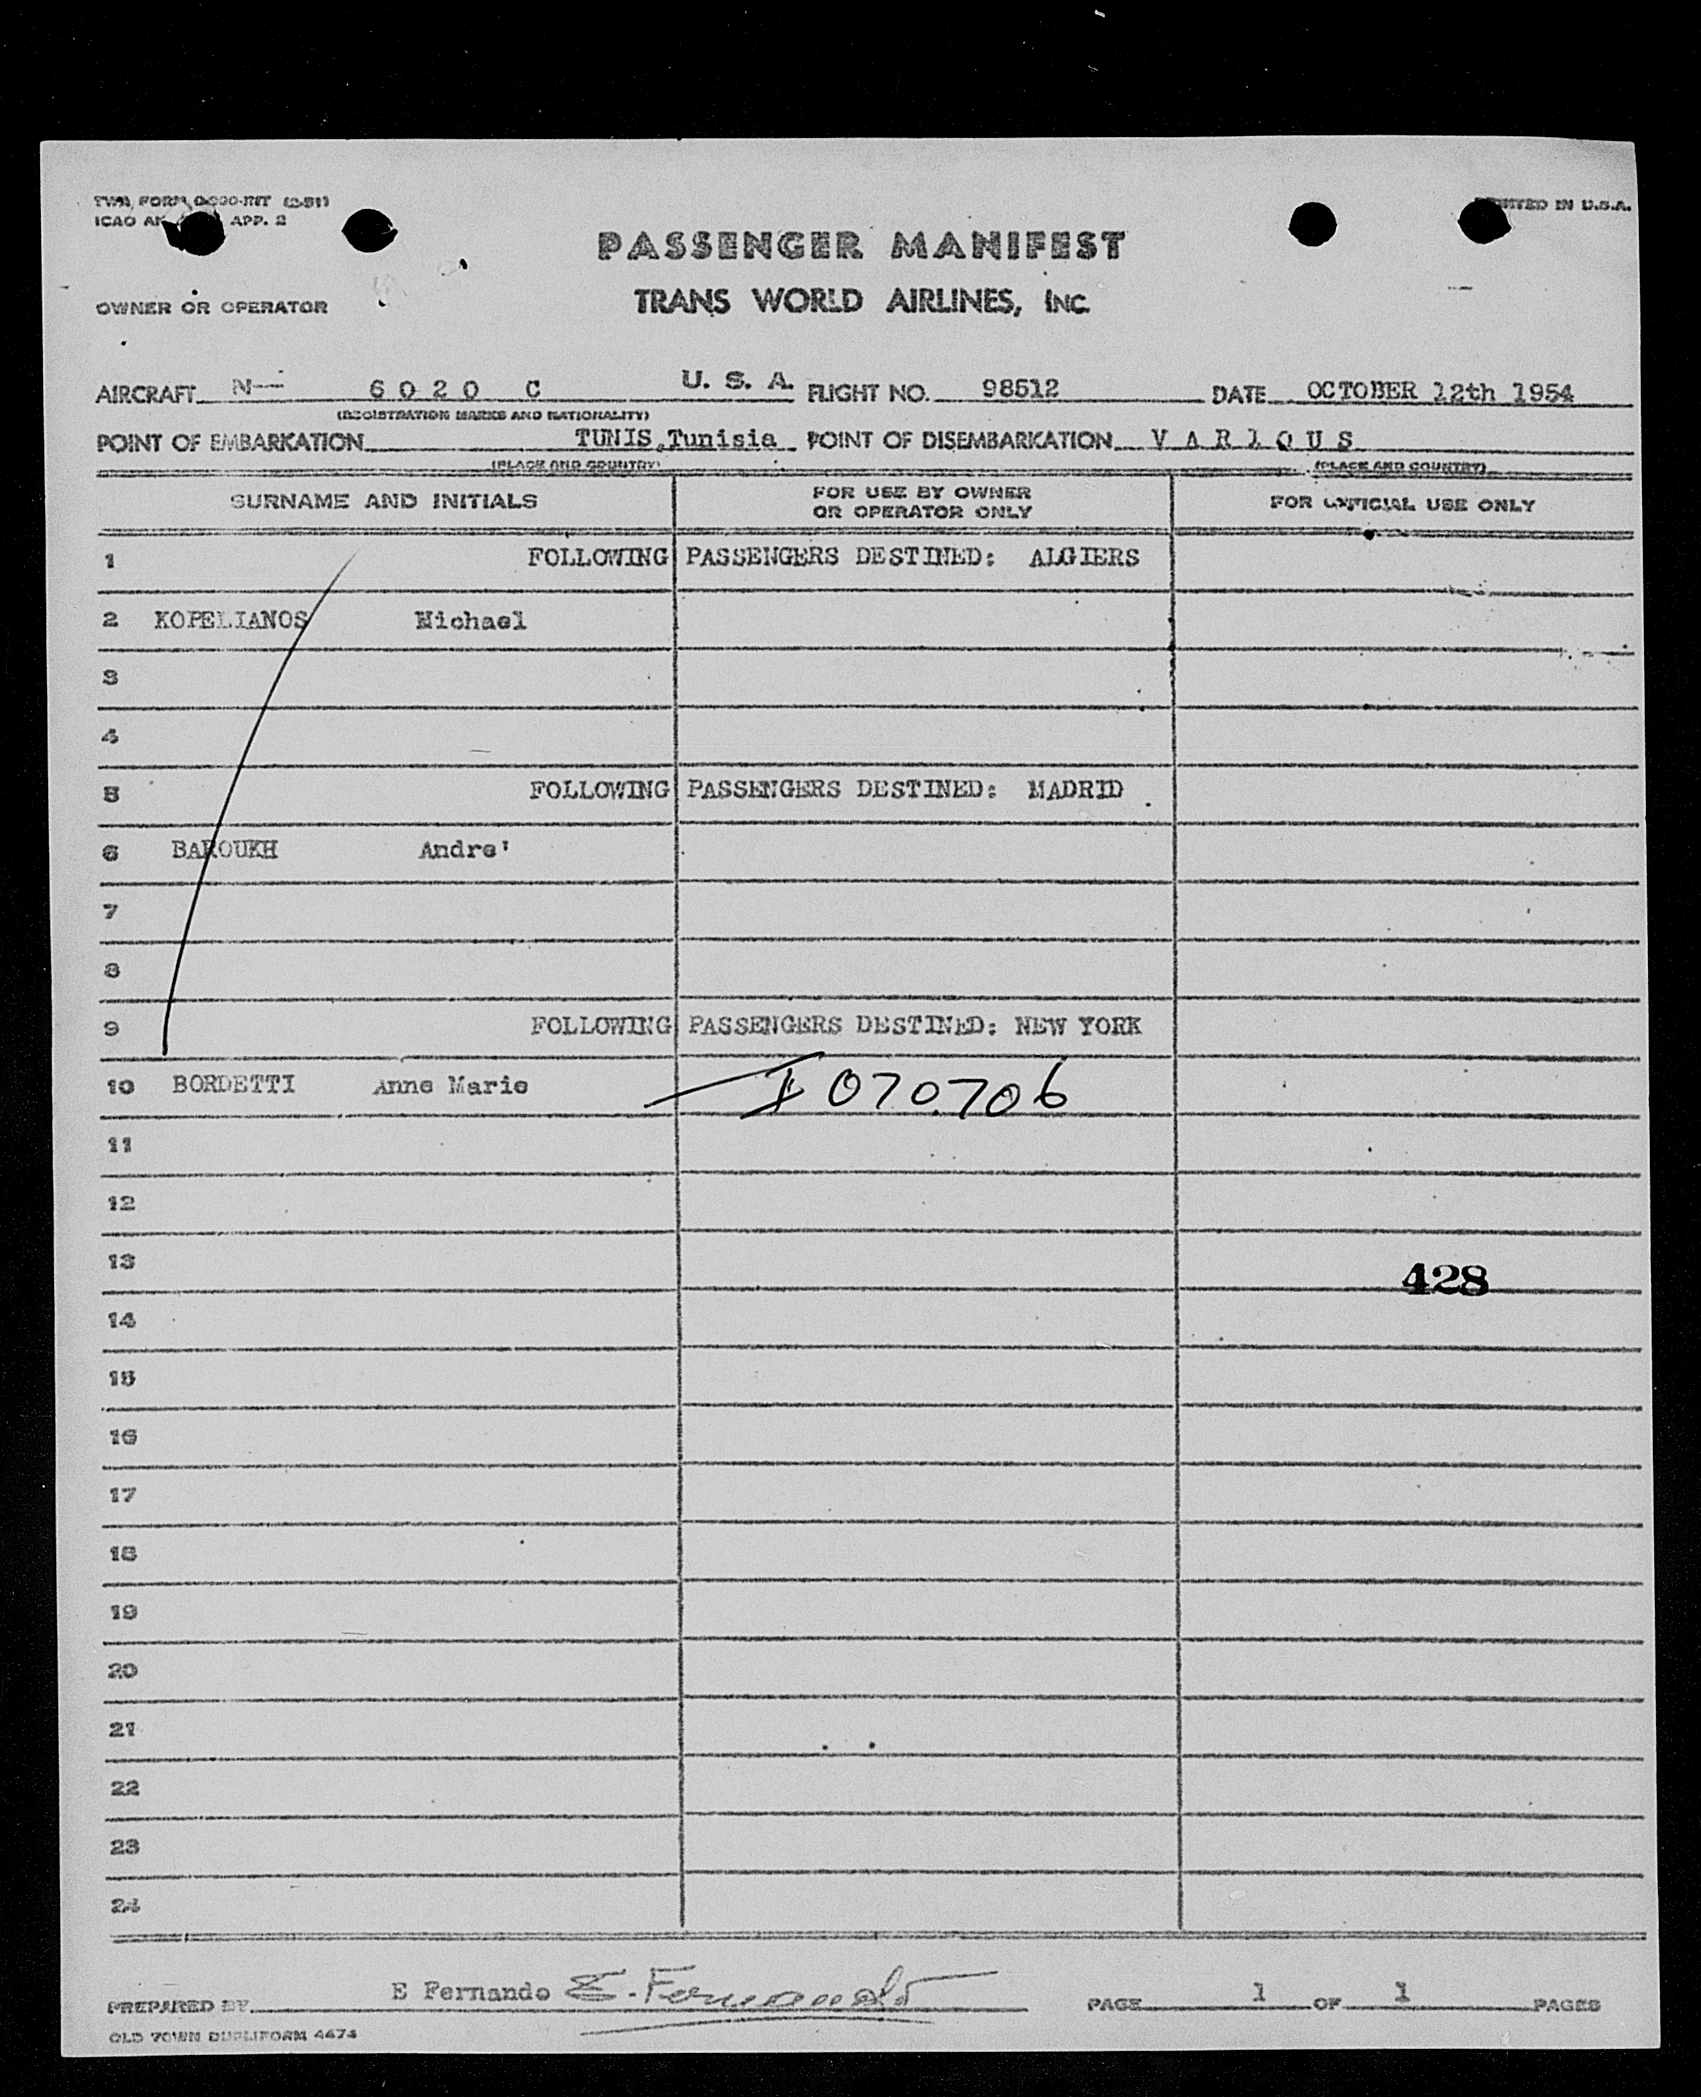 ICAO AN APP. 2
PRINTED IN U.S.A.
PASSENGER MANIFEST
OWNER OR OPERATOR
TRANS WORLD AIRLINES, INC.
AIRCRAFT N- 6020 C U. S. A. FLIGHT NO. 98512 DATE OCTOBER 12th 1954
(REGISTRATION MARKS AND NATIONALITY)
POINT OF EMBARKATION TUNIS,Tunisia POINT OF DISEMBARKATION V A R I O U S
(PLACE AND COUNTRY) (PLACE AND COUNTRY)
SURNAME AND INITIALS FOR USE BY OWNER OR OPERATOR ONLY FOR OFFICIAL USE ONLY
1 FOLLOWING PASSENGERS DESTINED: ALGIERS
2 KOPELIANOS Michael
3
4
5 FOLLOWING PASSENGERS DESTINED: MADRID
6 BAROUKH Andre'
7
8
9 FOLLOWING PASSENGERS DESTINED: NEW YORK
10 BORDETTI Anne Marie I 070706
11
12
13 428
14
15
16
17
18
19
20
21
22
23
24
PREPARED BY E Fernando E. Fernando PAGE 1 OF 1 PAGES
OLD TOWN DUPLIFORM 4474